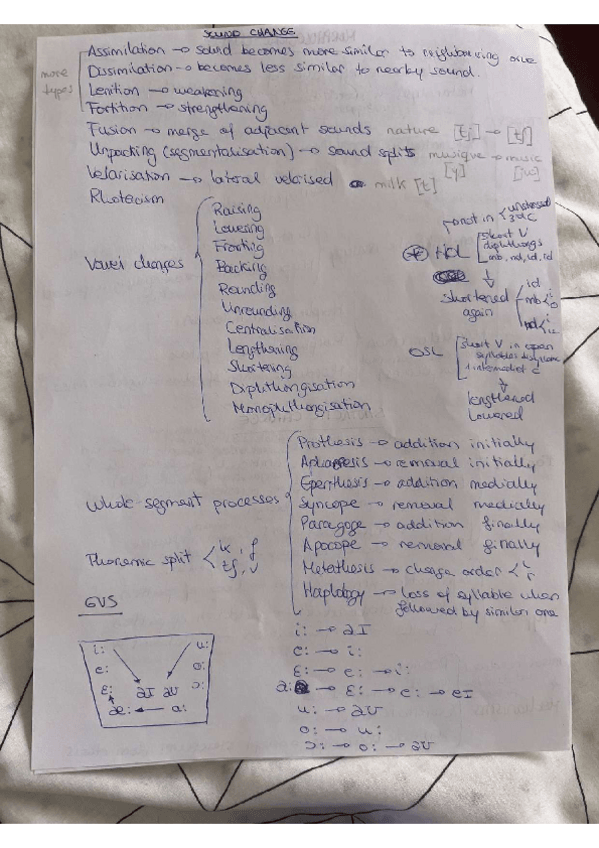 SOUND CHANGE
more types
Assimilation → sound becomes more similar to neighbouring one
Dissimilation → becomes less similar to nearby sound.
Lenition → weakening
Fortition → strengthening
Fusion → merge of adjacent sounds nature [tj] → [tʃ]
Unpacking (segmentalisation) → sound splits musique → music
[y] [ju]
Velarisation → lateral velarised milk [ɫ]
Rhotacism
Vowel changes
Raising
Lowering
Fronting
Backing
Rounding
Unrounding
Centralisation
Lengthening
Shortening
Diphthongisation
Monophthongisation
not in < unstressed
3rd C
HCL
short V
diphthongs
mb, nd, ld, rd
↓
shortened again
ld
mb <
nd <
OSL
short V in open
syllables disyllabic
1 intermediate C
↓
lengthened
lowered
Whole-segment processes
Prosthesis → addition initially
Aphaeresis → removal initially
Epenthesis → addition medially
Syncope → removal medially
Paragoge → addition finally
Apocope → removal finally
Metathesis → change order <
Haplology → loss of syllable when
followed by similar one
Phonemic split <
GVS
i: u:
e: o:
ɛ: əɪ əʊ ɔ:
æ: ← a:
i: → əɪ
e: → i:
ɛ: → e: → i:
a: → ɛ: → e: → eɪ
u: → əʊ
o: → u:
ɔ: → o: → əʊ